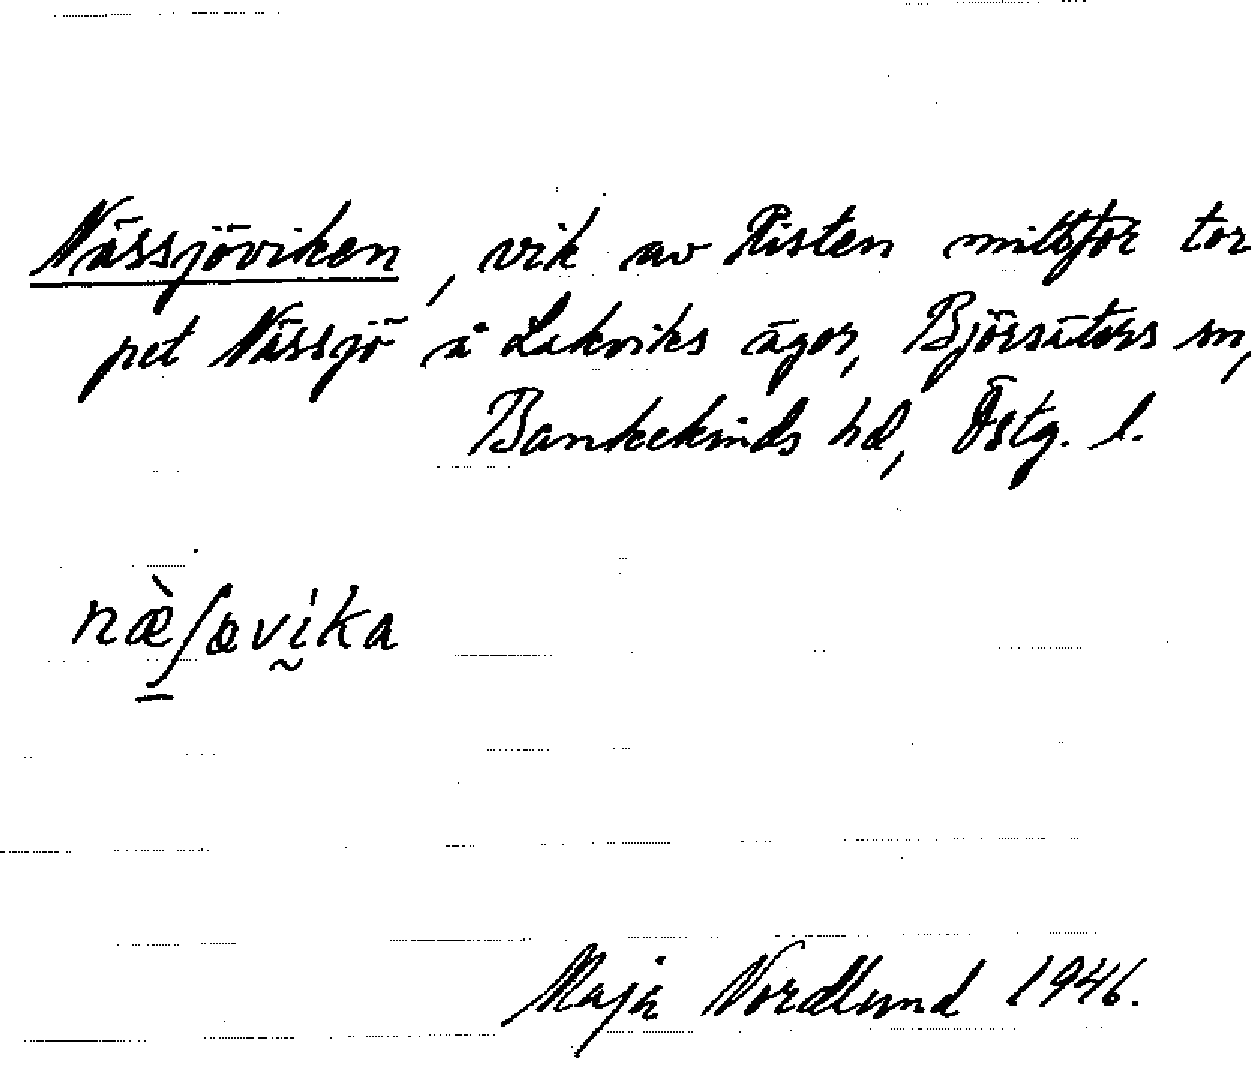 Nässjöviken, vik av Risten mittför tor
pet Nässjö å Lakviks ägor, Björsäters sn,
Bankekinds hd, Östg. l.
næ̀ʃævḭka
Maja Nordlund 1946.